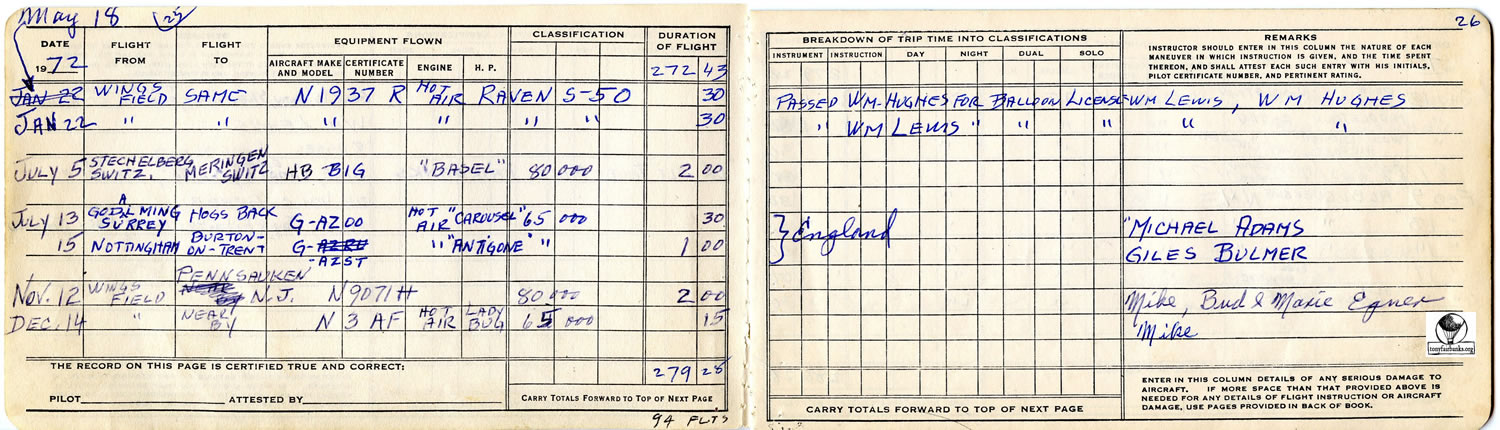 May 18 25
DATE FLIGHT FROM FLIGHT TO EQUIPMENT FLOWN CLASSIFICATION DURATION OF FLIGHT
1972 AIRCRAFT MAKE AND MODEL CERTIFICATE NUMBER ENGINE H. P. 272 43
JAN 22 WINGS FIELD SAME N1937R HOT AIR RAVEN S-50 30
JAN 22 " " " " " " " 30
JULY 5 STECHELBERG SWITZ. MERINGEN SWITZ HB BIG "BASEL" 80 000 2 00
JULY 13 GODALMING SURREY HOGS BACK G-AZOO HOT AIR "CAROUSEL" 65 000 30
15 NOTTINGHAM BURTON-ON-TRENT G-AZRU -AZST " "ANTIGONE" " 1 00
NOV. 12 WINGS FIELD NEAR BY PENNSAUKEN N.J. N9071H 80 000 2 00
DEC. 14 " NEAR BY N3AF HOT AIR LADY BUG 65 000 15
THE RECORD ON THIS PAGE IS CERTIFIED TRUE AND CORRECT: 279 28
PILOT ATTESTED BY CARRY TOTALS FORWARD TO TOP OF NEXT PAGE
94 FLTS
26
BREAKDOWN OF TRIP TIME INTO CLASSIFICATIONS REMARKS
INSTRUMENT INSTRUCTION DAY NIGHT DUAL SOLO
INSTRUCTOR SHOULD ENTER IN THIS COLUMN THE NATURE OF EACH
MANEUVER IN WHICH INSTRUCTION IS GIVEN, AND THE TIME SPENT
THEREON, AND SHALL ATTEST EACH SUCH ENTRY WITH HIS INITIALS,
PILOT CERTIFICATE NUMBER, AND PERTINENT RATING.
PASSED WM-HUGHES FOR BALLOON LICENSE WM LEWIS, WM HUGHES
" WM LEWIS " " " " "
} England "MICHAEL ADAMS
GILES BULMER
Mike, Bud & Marie Egner
Mike
tonyfairbanks.org
ENTER IN THIS COLUMN DETAILS OF ANY SERIOUS DAMAGE TO
AIRCRAFT. IF MORE SPACE THAN THAT PROVIDED ABOVE IS
NEEDED FOR ANY DETAILS OF FLIGHT INSTRUCTION OR AIRCRAFT
DAMAGE, USE PAGES PROVIDED IN BACK OF BOOK.
CARRY TOTALS FORWARD TO TOP OF NEXT PAGE